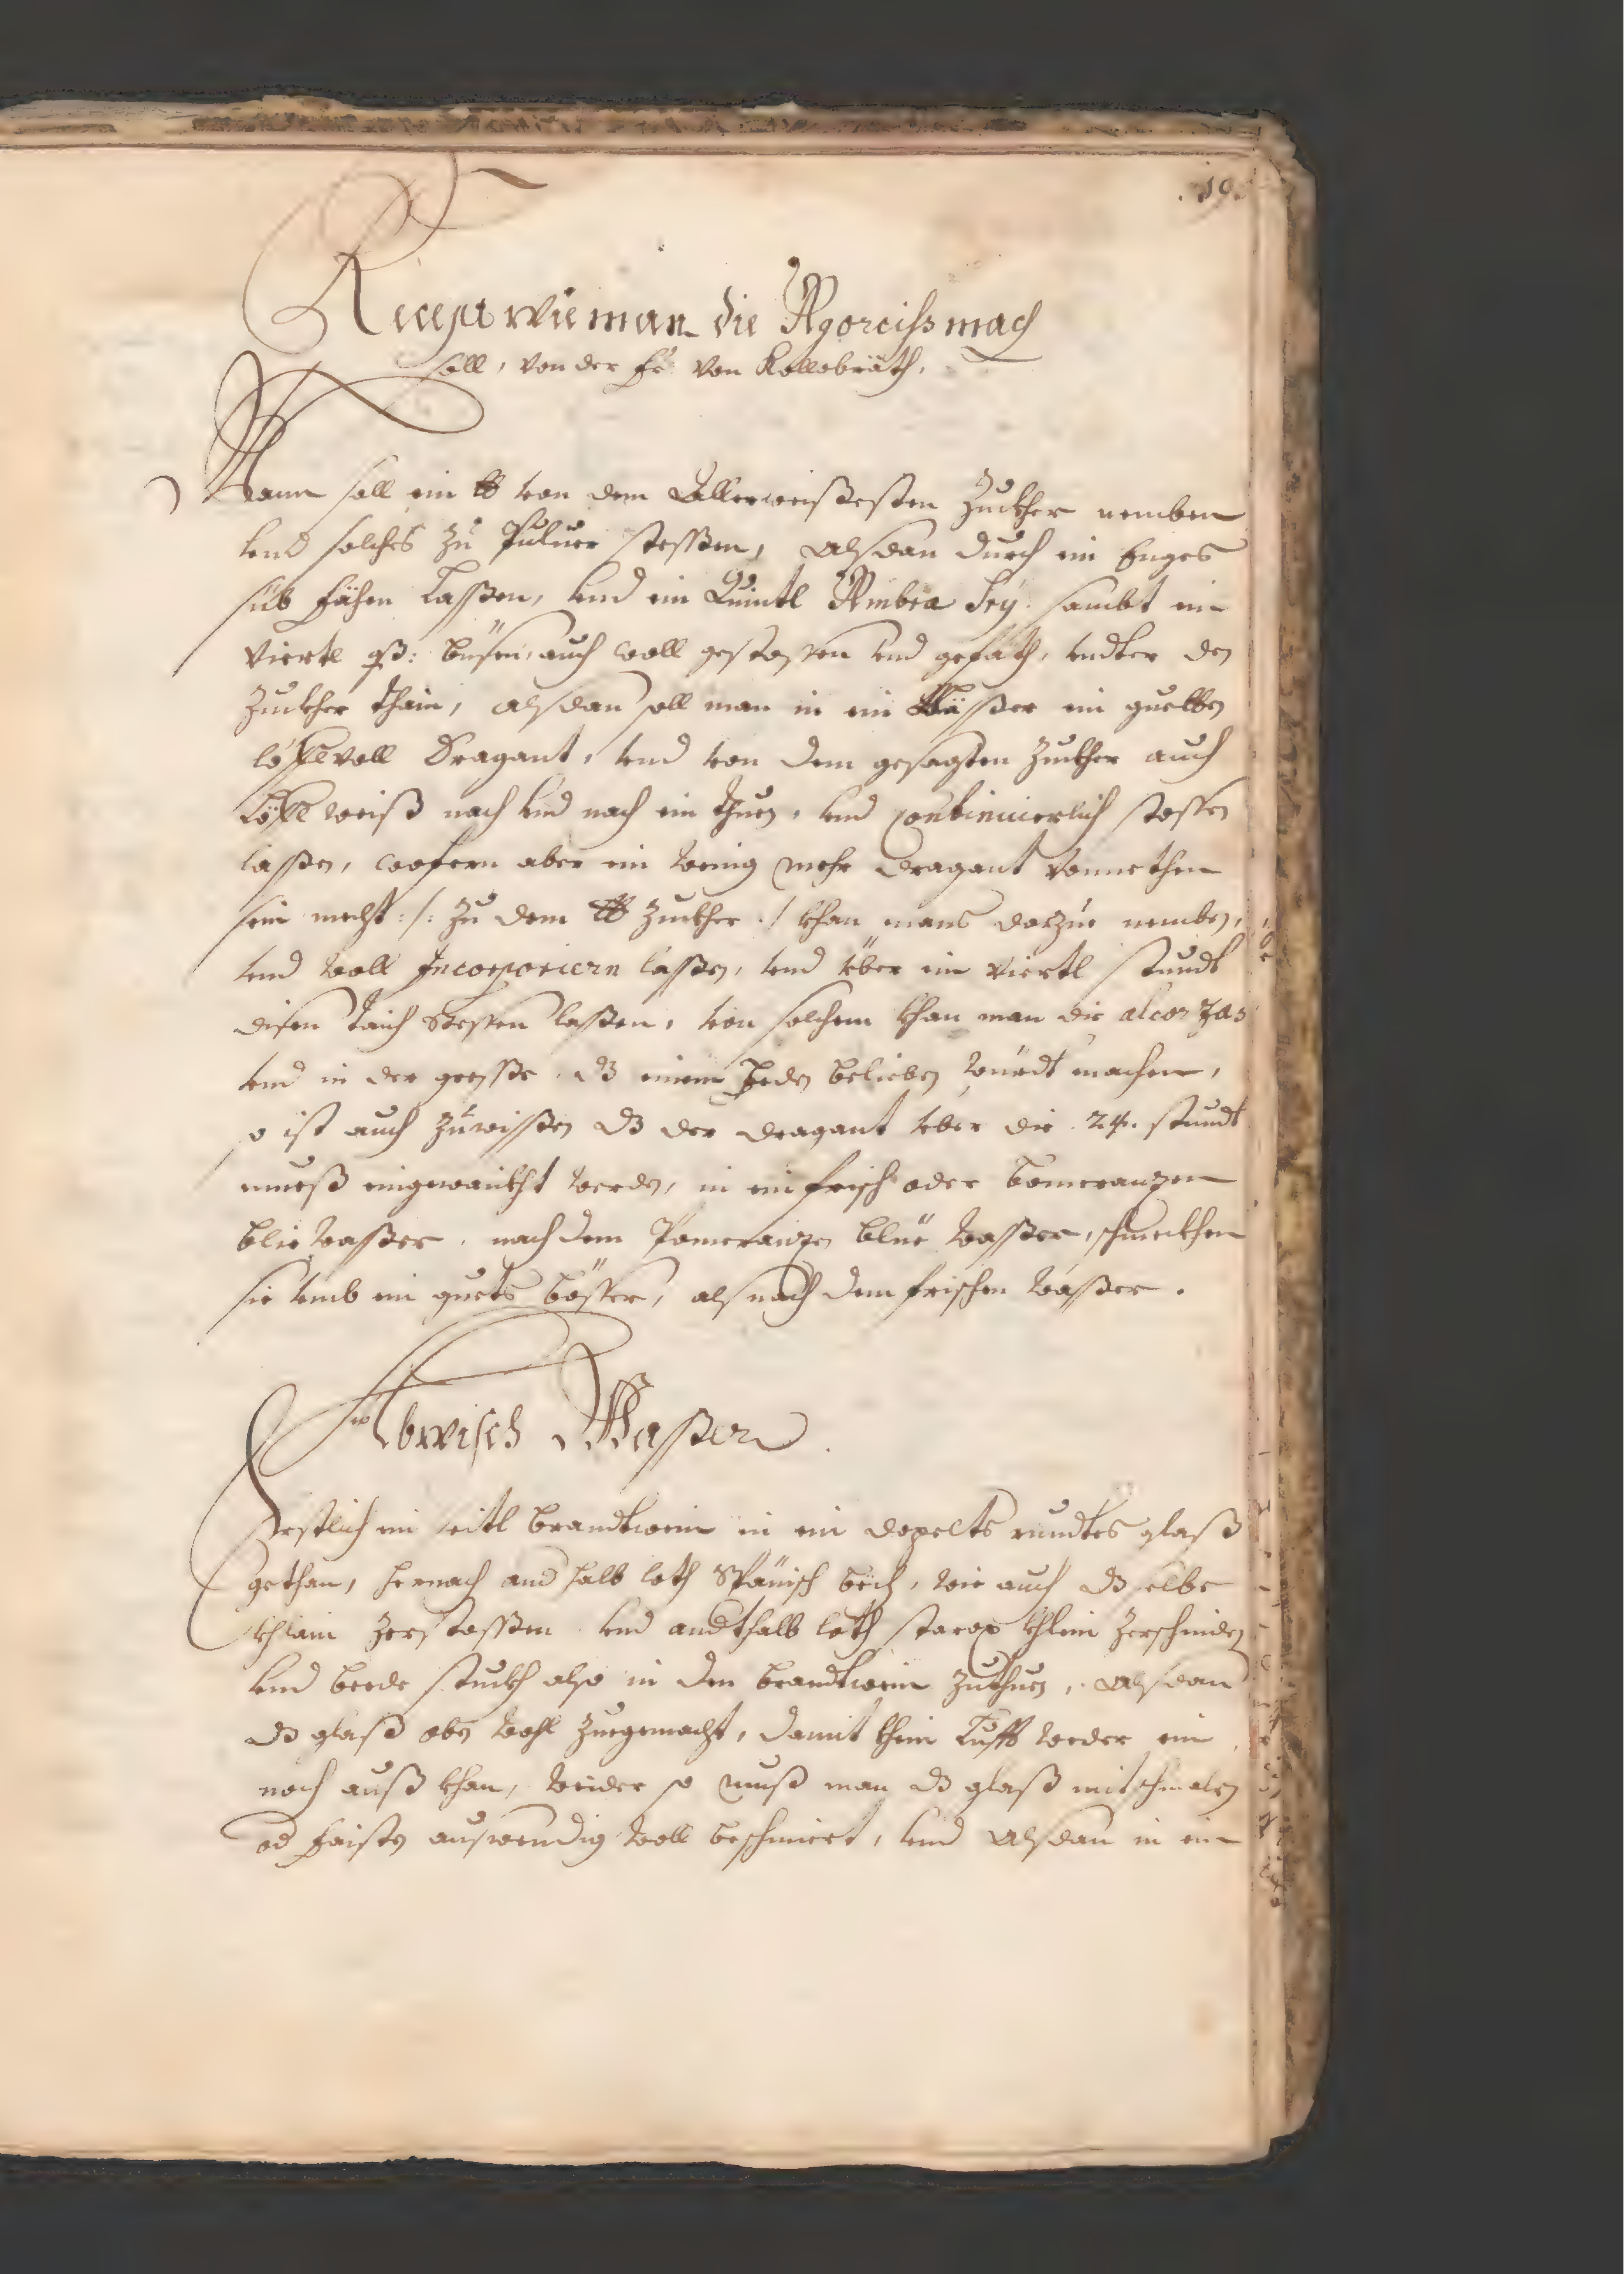 .19.
Recept wie man die Agorciss mach
soll, von der fr: von Kollobräth,
Mann soll ein ℔ von dem Allerweißesten Zuckher nemben
vnd solches zu Puluer stossen, alsdan durch ein Enges
süb fähen Lassen, vnd ein Quintl Ambra sambt ein
Viertl auch woll gestossen vnd gefäth, vndter den
Zuckher thain, alsdan soll man in ein Mösser ein guetten
löffl voll Dragant, vnd von dem gesagten Zuckher auch
Löffl weiß nach vnd nach ein thuen, vnd continuierlich stossen
lassen, wofern aber ein wenig mehr dragant vonnethen
sein mecht :/: zu dem ℔ Zuckher ./ khan mans darzue nemben,
vnd woll Incorporiern lassen, vnd über ein Viertl stundt
disen taich stossen lassen, von solchem khan man die alcorzas
vnd in der gresse dz einem Jeden belieben würdt machen,
so ist auch zuwissen dz der dragant vber die 24. stundt
mueß eingewaickht werden, in ein frisch oder bomeranzen
blie wasser, nach dem Pomeranzen blüe wasser, schmeckhen
sie vmb ein guets bösser, als nach dem frischen wasser.
Abwisch Wasser
Erstlich ein seitl brandtwein in ein dopelts rundtes glaß
gethan, hernach and halb loth Spänisch bech, wie auch dz selbe
khlain zerstossen vnd andthalb loth storax khlein zerschniden
vnd beede stuckh also in den brandtwein zuthuen, alsdan
dz glaß oben wohl zuegemacht, damit khein Lufft weder ein
noch auß khan, wider so mueß man dz glaß mit schmalz
od faisten auswendig woll beschmiert, vnd alsdan in ein